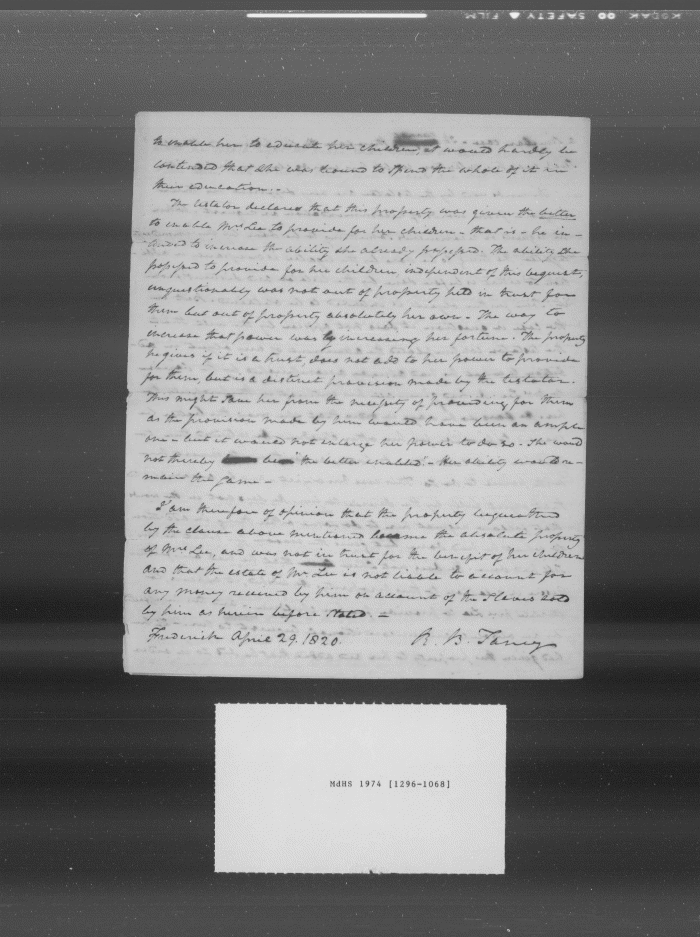 KODAK SAFETY FILM
to enable her to educate her children, it would hardly be
contended that she was bound to spend the whole of it in
their education. -
The testator declares that this property was given the better
to enable Mrs Lee to provide for her children - that is - he in-
tended to increase the ability she already possessed. The ability she
possessed to provide for her children independent of this bequest,
unquestionably was not out of property held in trust for
them but out of property absolutely her own - The way to
increase that power was by increasing her fortune - The property
he gives if it is a trust, does not add to her power to provide
for them, but is a distinct provision made by the testator.
This might save her from the necessity of providing for them
as the provision made by him would have been an ample
one - but it would not enlarge her power to do so. She would
not thereby been "the better enabled" - Her ability would re-
main the same -
I am therefore of opinion that the property bequeathed
by the clause above mentioned became the absolute property
of Mrs Lee, and was not in trust for the benefit of her children
and that the estate of Mr Lee is not liable to account for
any money received by him on account of the Slaves sold
by him as herein before stated -
Frederick April 29. 1820. R. B. Taney
MdHS 1974 [1296-1068]